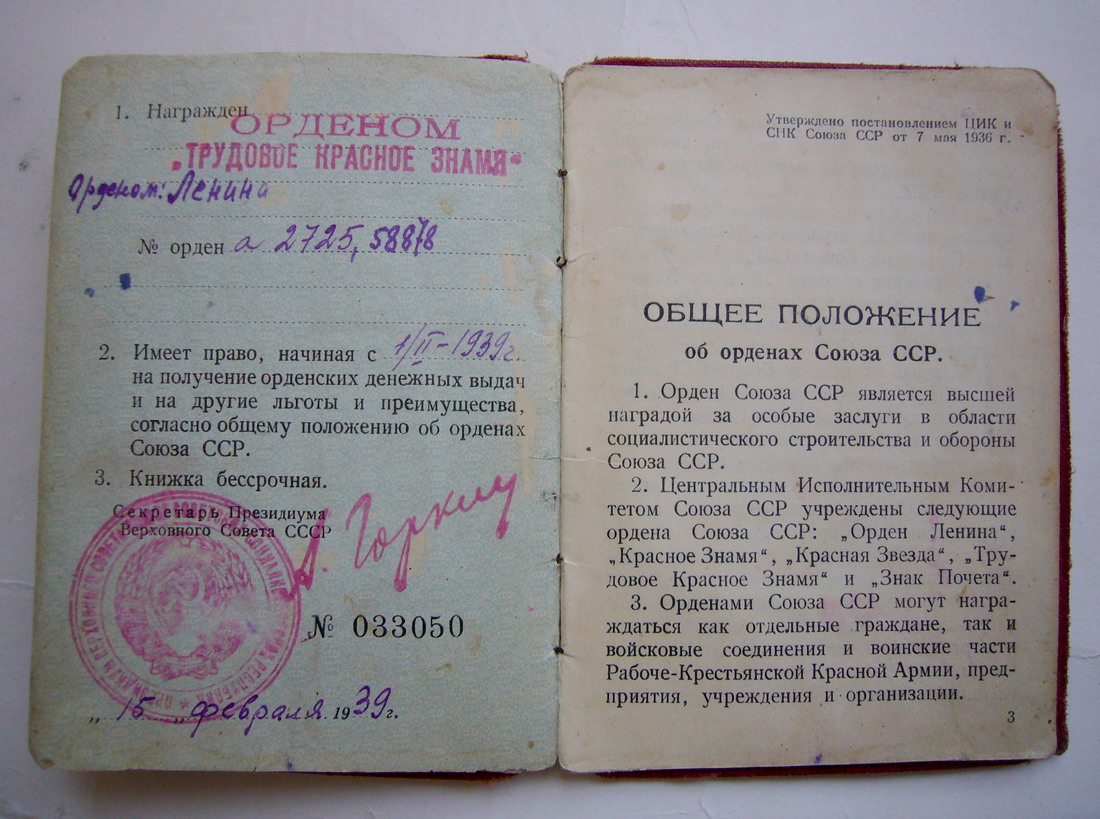 1. Награжден
ОРДЕНОМ
„ТРУДОВОЕ КРАСНОЕ ЗНАМЯ“
Орденом: Ленина
№ орден а 2725, 58878
2. Имеет право, начиная с 1/II-1939 г.
на получение орденских денежных выдач
и на другие льготы и преимущества,
согласно общему положению об орденах
Союза ССР.
3. Книжка бессрочная.
Секретарь Президиума
Верховного Совета СССР
А. Горкин
№ 033050
„ 15 „ февраля 1939 г.
Утверждено постановлением ЦИК и
СНК Союза ССР от 7 мая 1936 г.
ОБЩЕЕ ПОЛОЖЕНИЕ
об орденах Союза ССР.
1. Орден Союза ССР является высшей
наградой за особые заслуги в области
социалистического строительства и обороны
Союза ССР.
2. Центральным Исполнительным Коми-
тетом Союза ССР учреждены следующие
ордена Союза ССР: „Орден Ленина“,
„Красное Знамя“, „Красная Звезда“, „Тру-
довое Красное Знамя“ и „Знак Почета“.
3. Орденами Союза ССР могут награ-
ждаться как отдельные граждане, так и
войсковые соединения и воинские части
Рабоче-Крестьянской Красной Армии, пред-
приятия, учреждения и организации.
3